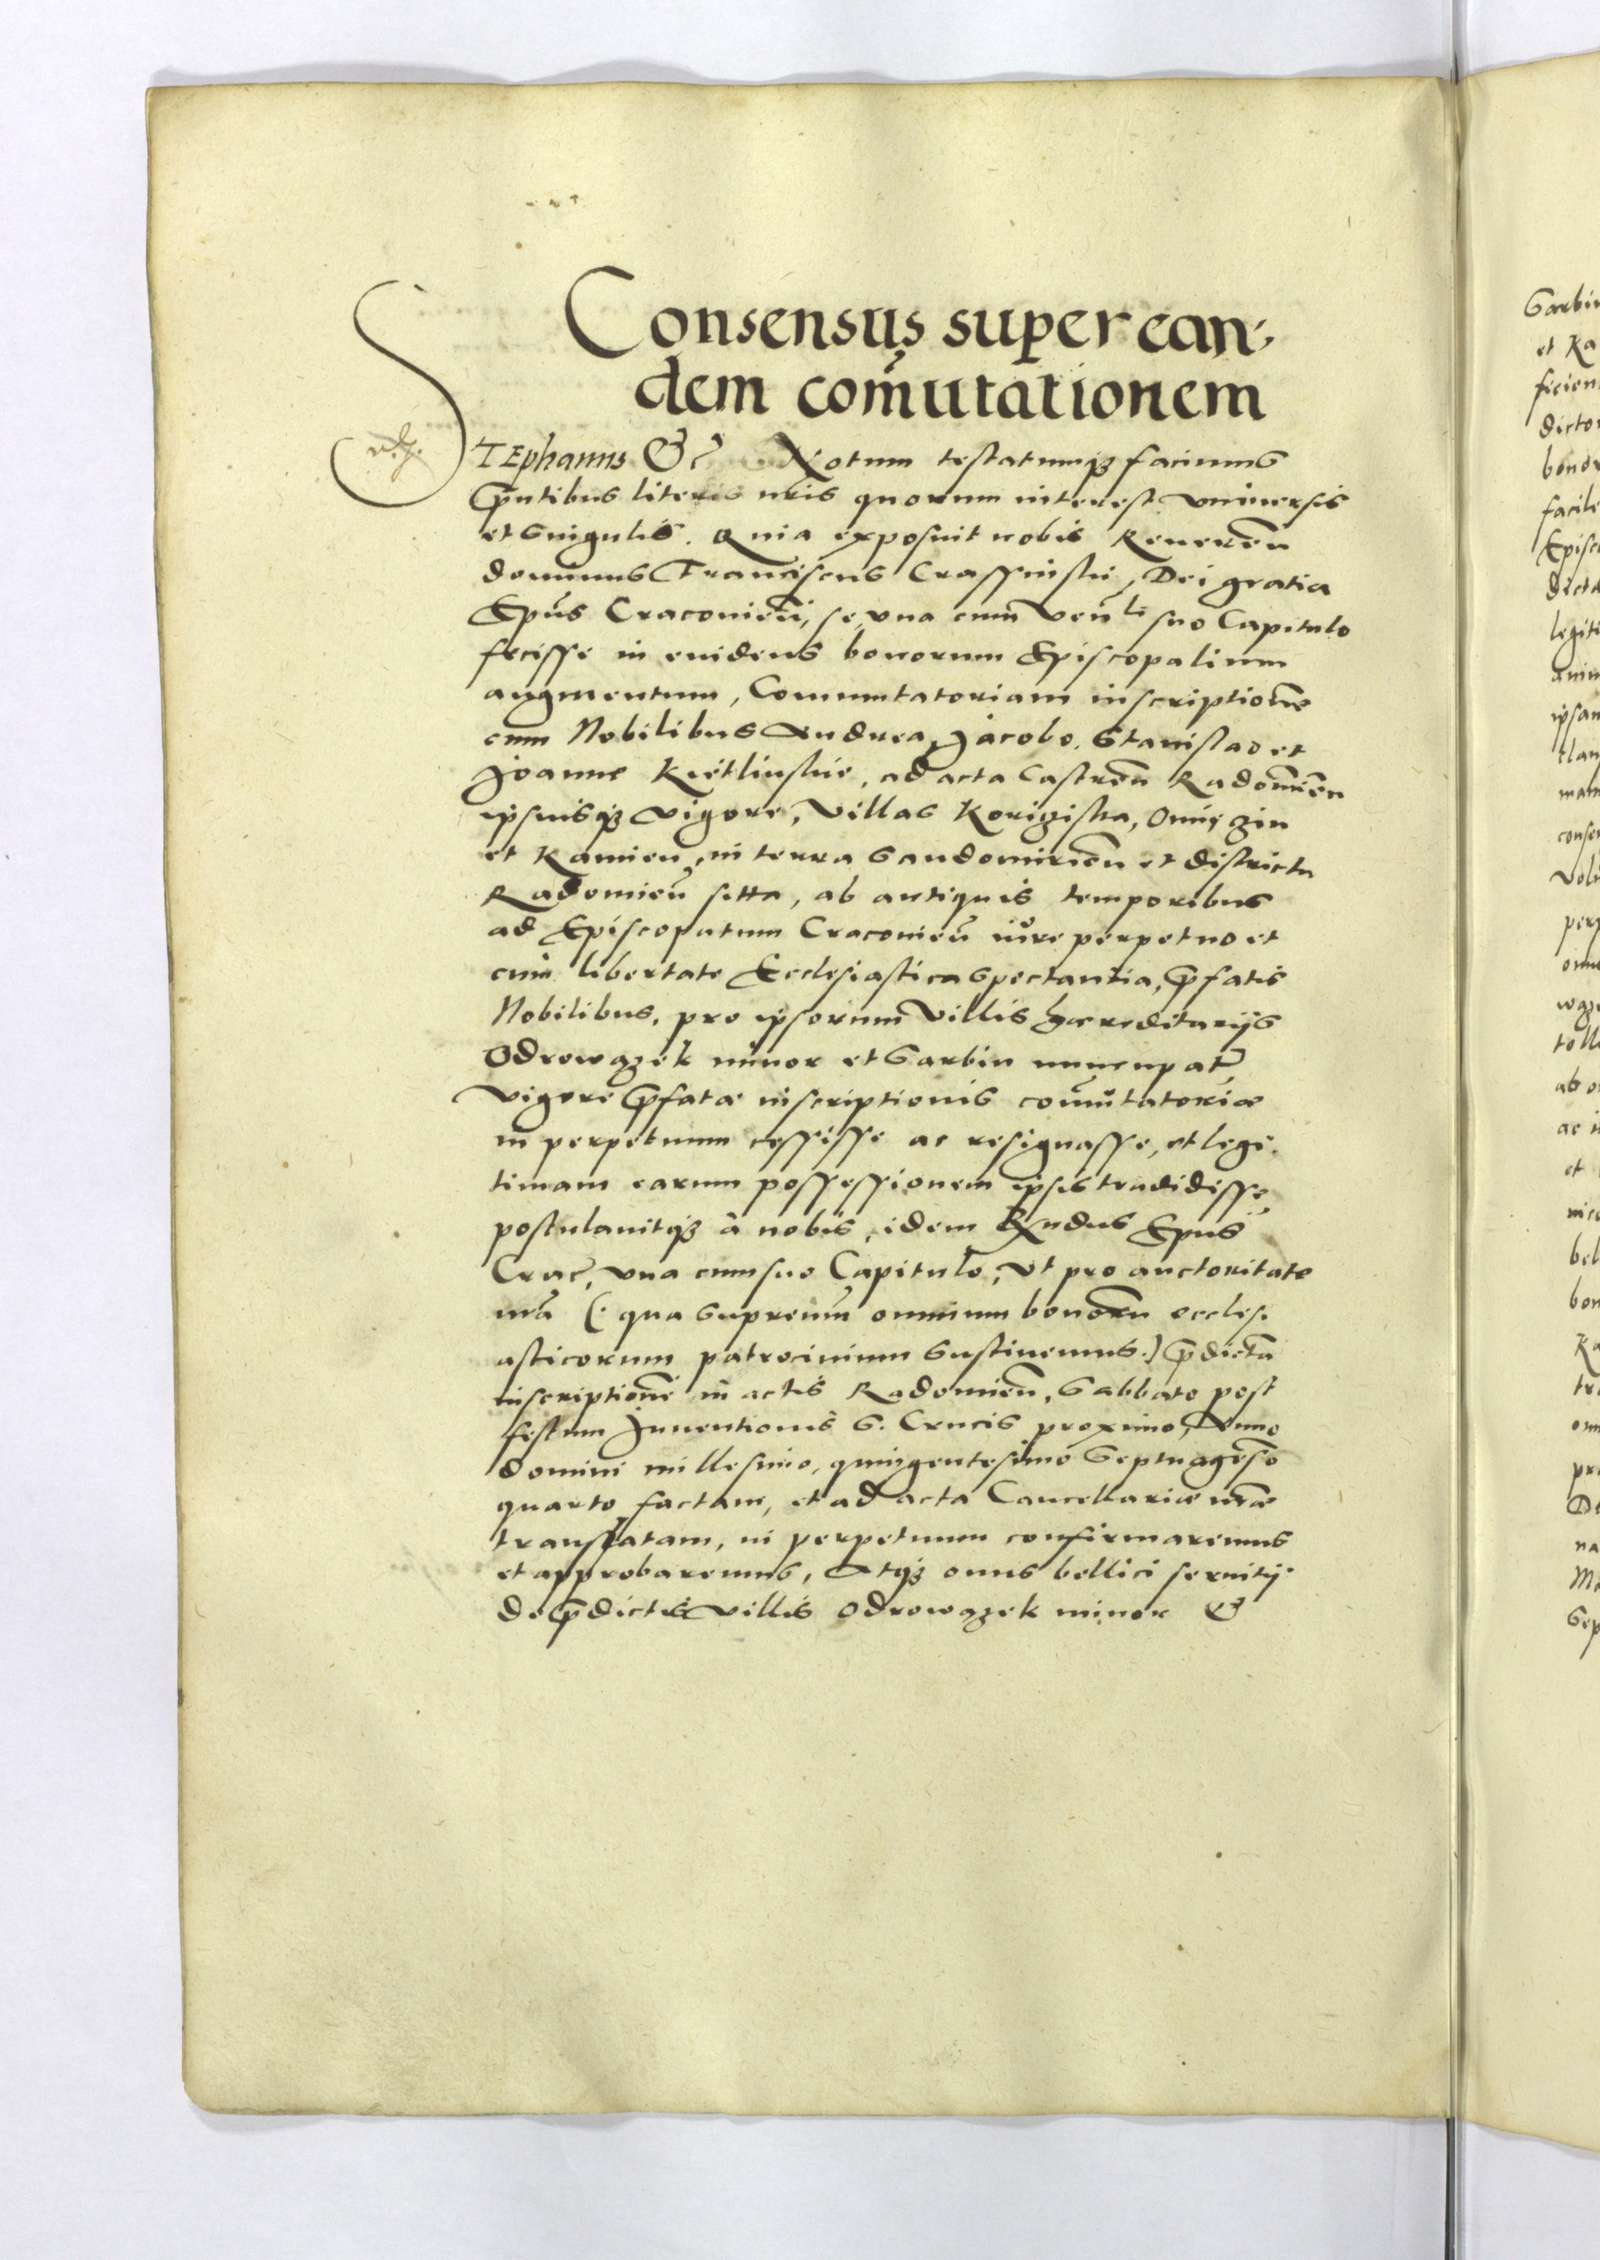 Consensus super ean-
dem com̃utationem
STEphanus &c̃ Notum testatumqȝ facimus
p̃ntibus literis nris quorum interest vniuersis
et singulis. Quia exposuit nobis Reueren̄
dominus Franciscus Crassinski, Dei gratia
Ep̃us Cracouien̄, se vna cum Ven̄li suo Capitulo
fecisse in euidens bonorum Episcopalium
augmentum, Commutatoriam inscriptionē
cum Nobilibus Andrea, Jacobo, Stanislao et
Joanne Kietlinskie, ad acta Castren̄ Radomien̄
ipsiusqȝ vigore, Villas
et Kamien, in terra Sandomirien̄ et districtu
Radomien̄ sitta, ab antiquis temporibus
ad Episcopatum Cracouien̄ iure perpetuo et
cum libertate Ecclesiastica spectantia, p̃fatis
Nobilibus, pro ipsorum Villis hæreditarijs
Odrowazek minor et Garbin nuncupat̃
vigore p̃fatæ inscriptionis com̃utatoriæ
in perpetuum cessisse ac resignasse, et legi-
timam earum possessionem ipsis tradidisse,
postulauitqȝ à nobis, idem Rx̃ndus Ep̃us
Crac̃, vna cum suo Capitulo, vt pro auctoritate
nrã (: qua supremũ omnium bonorũ eccles-
iasticorum patrocinium sustinemus:) p̃dictã
inscriptionē in actis Radomien̄, Sabbato post
festum Inuentionis S. Crucis proximo, Anno
domini millesimo, quingentesimo Septuagesĩo
quarto factam, et ad acta Cancellariæ nrãe
translatam, in perpetuum confirmaremus
et approbaremus, Atqȝ onus bellici seruitij
de p̃dictis villis Odrowazek minor &
Garbin
et Ka
ficien
dicto
bonor
facile
Episc
dicta
legiti
anim
ipsam
clam
mam
conse
Vol
perp
omn
waze
tolle
ab o
ac i
et
nice
bel
bon
Ka
tra
omn
pr
De
na
Me
Sep